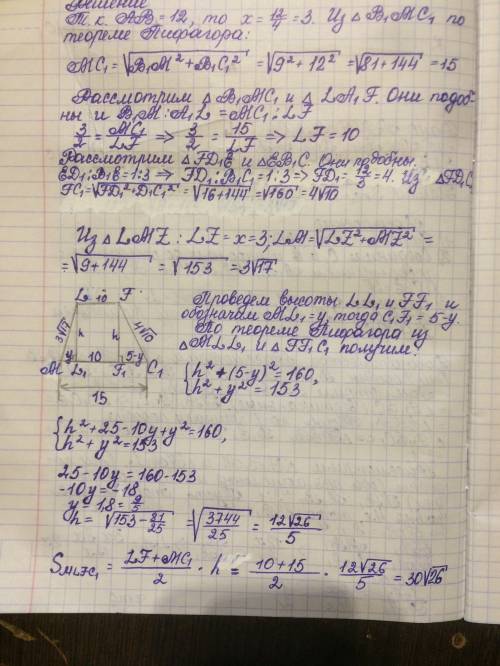 Решение
Т.к. AB = 12, то x = 12/4 = 3. Из △ B₁MC₁ по
теореме Пифагора:
MC₁ = √(B₁M² + B₁C₁²) = √(9² + 12²) = √(81 + 144) = 15
Рассмотрим △ B₁MC₁ и △ LA₁F. Они подоб-
ны и B₁M : A₁L = MC₁ : LF
3/2 = MC₁/LF ⇒ 3/2 = 15/LF ⇒ LF = 10
Рассмотрим △FD₁E и △EB₁C. Они подобны.
ED₁ : B₁E = 1:3 ⇒ FD₁ : B₁C₁ = 1:3 ⇒ FD₁ = 12/3 = 4. Из △FD₁C₁
FC₁ = √(FD₁² + D₁C₁²) = √(16 + 144) = √160 = 4√10
Из △ LMZ : LZ = x = 3; LM = √(LZ² + MZ²) =
= √(9 + 144) = √153 = 3√17
L 10 F
3√17 h h 4√10
y 10 5-y
M L₁ F₁ C₁
15
Проведем высоты LL₁ и FF₁ и
обозначим ML₁ = y, тогда C₁F₁ = 5-y.
По теореме Пифагора из
△MLL₁ и △FF₁C₁ получим:
{h² + (5-y)² = 160,
h² + y² = 153
{h² + 25 - 10y + y² = 160,
h² + y² = 153
25 - 10y = 160 - 153
-10y = -18
y = 1,8 = 9/5
h = √(153 - 81/25) = √(3744/25) = 12√26/5
S_MLFC₁ = (LF + MC₁)/2 · h = (10 + 15)/2 · 12√26/5 = 30√26